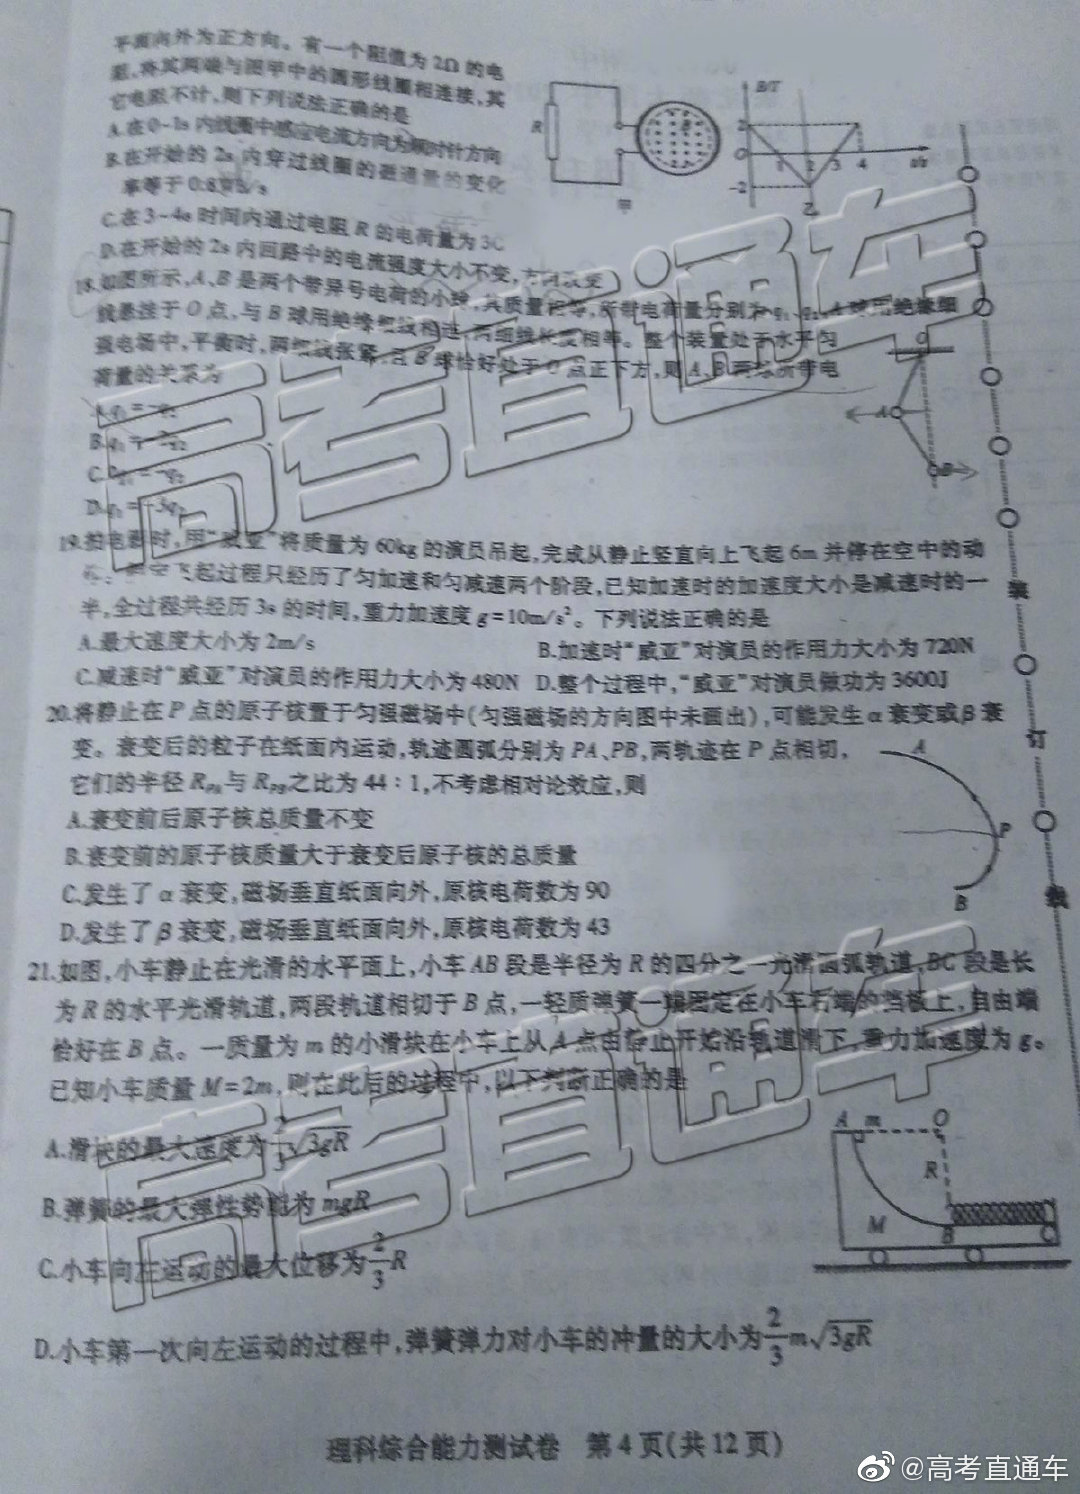 平面向外为正方向。有一个阻值为2Ω的电
阻,将其两端与图甲中的圆形线圈相连接,其
它电阻不计,则下列说法正确的是
A.在0-1s内线圈中感应电流方向为顺时针方向
B.在开始的2s内穿过线圈的磁通量的变化
率等于0.8
C.在3-4s时间内通过电阻R的电荷量为3C
D.在开始的2s内回路中的电流强度大小不变,
R
甲
B/T
2
O
-2
1
2
3
4
t/s
乙
18.如图所示,A、B是两个带异号电荷的小球,其质量相等,所带电荷量分别为q₁、q₂,A球用绝缘细
线悬挂于O点,A、B球用绝缘细线相连,两细线长度相等。整个装置处于水平匀
强电场中,平衡时,两细线张紧,且B球恰好处于O点正下方,则A、B两球所带电
荷量的关系为
A.q₁=-q₂
B.q₁=-2q₂
C.2q₁=-q₂
D.q₁=-3q₂
O
A
B
19.拍电影时,用“威亚”将质量为60kg的演员吊起,完成从静止竖直向上飞起6m并停在空中的动
飞起过程只经历了匀加速和匀减速两个阶段,已知加速时的加速度大小是减速时的一
半,全过程共经历3s的时间,重力加速度g=10m/s²。下列说法正确的是
A.最大速度大小为2m/s
B.加速时“威亚”对演员的作用力大小为720N
C.减速时“威亚”对演员的作用力大小为480N D.整个过程中,“威亚”对演员做功为3600J
20.将静止在P点的原子核置于匀强磁场中(匀强磁场的方向图中未画出),可能发生α衰变或β衰
变。衰变后的粒子在纸面内运动,轨迹圆弧分别为PA、PB,两轨迹在P点相切,
它们的半径R_PA与R_PB之比为44:1,不考虑相对论效应,则
A.衰变前后原子核总质量不变
B.衰变前的原子核质量大于衰变后原子核的总质量
C.发生了α衰变,磁场垂直纸面向外,原核电荷数为90
D.发生了β衰变,磁场垂直纸面向外,原核电荷数为43
A
P
B
21.如图,小车静止在光滑的水平面上,小车AB段是半径为R的四分之一光滑圆弧轨道,BC段是长
为R的水平光滑轨道,两段轨道相切于B点,一轻质弹簧一端固定在小车右端的挡板上,自由端
恰好在B点。一质量为m的小滑块在小车上从A点由静止开始沿轨道滑下,重力加速度为g。
已知小车质量M=2m,则在此后的过程中,以下判断正确的是
A.滑块的最大速度为2/3√3gR
B.弹簧的最大弹性势能为mgR
C.小车向左运动的最大位移为2/3R
D.小车第一次向左运动的过程中,弹簧弹力对小车的冲量的大小为2/3m√3gR
A m O
R
M
B
C
装
订
线
高考直通车
高考直通车
理科综合能力测试卷 第4页(共12页)
@高考直通车